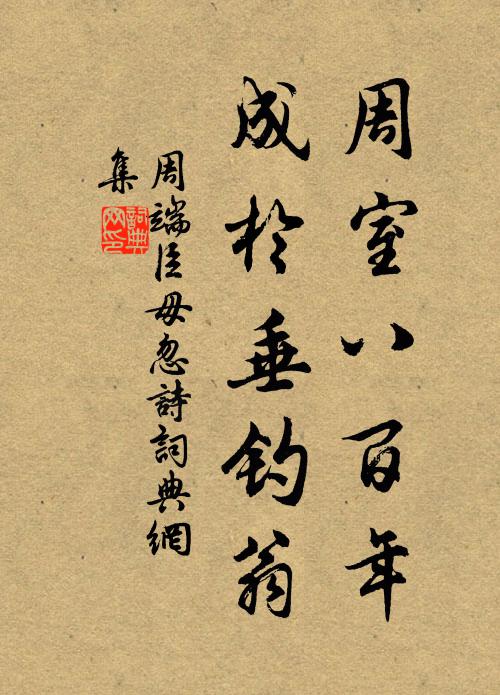 周室八百年
成於垂釣翁
周端臣毋忽詩詞典網
集
詞典
网印